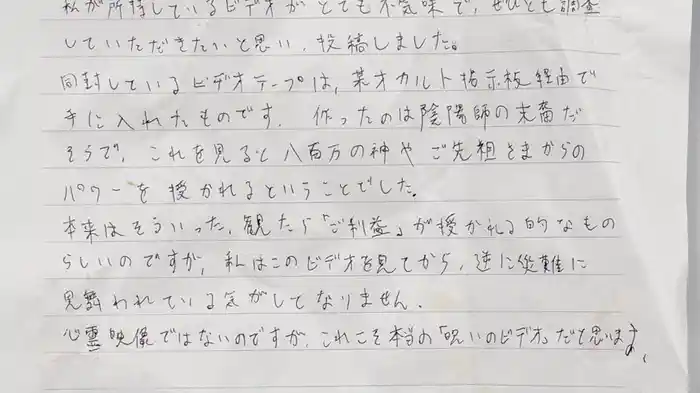 私が所持しているビデオがとても不気味で、ぜひとも調査
していただきたいと思い、投稿しました。
同封しているビデオテープは、某オカルト掲示板経由で
手に入れたものです。作ったのは陰陽師の末裔だ
そうで、これを見ると八百万の神やご先祖さまからの
パワーを授かれるということでした。
本来はそういった、観たら「ご利益」が授かれる的なもの
らしいのですが、私はこのビデオを見てから、逆に災難に
見舞われている気がしてなりません。
心霊映像ではないのですが、これこそ本当の「呪いのビデオ」だと思います。